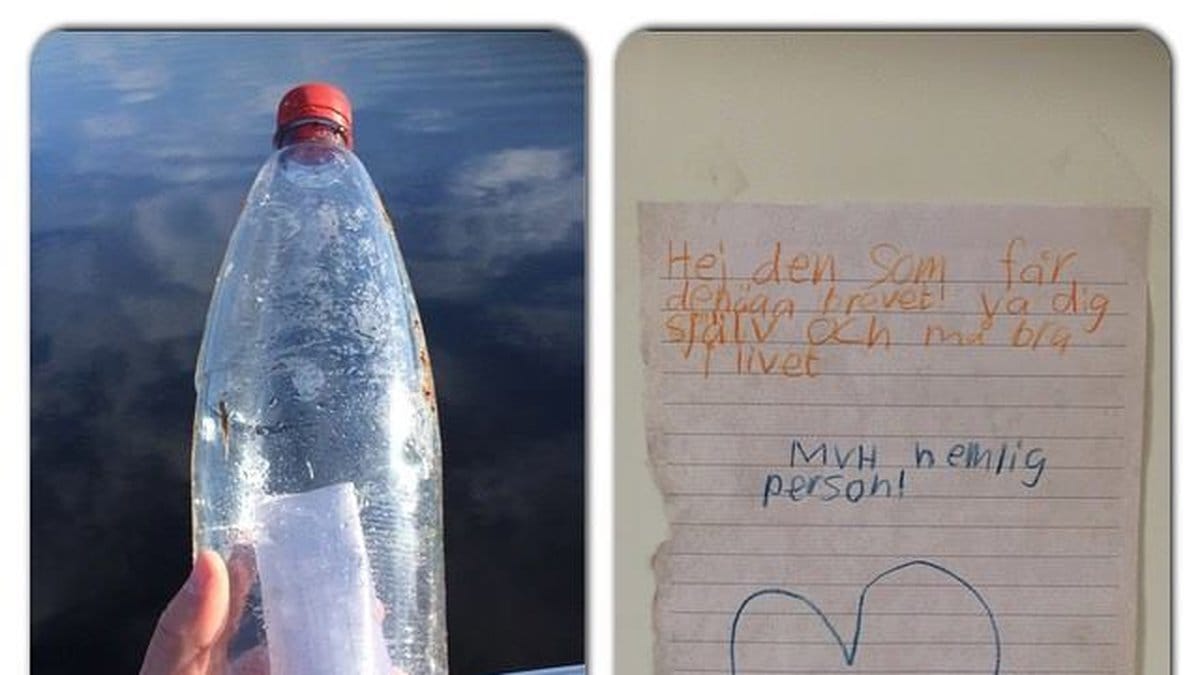 Hej den Som får
brevet! va dig
själv och må bra
i livet
MVH hemlig
person!